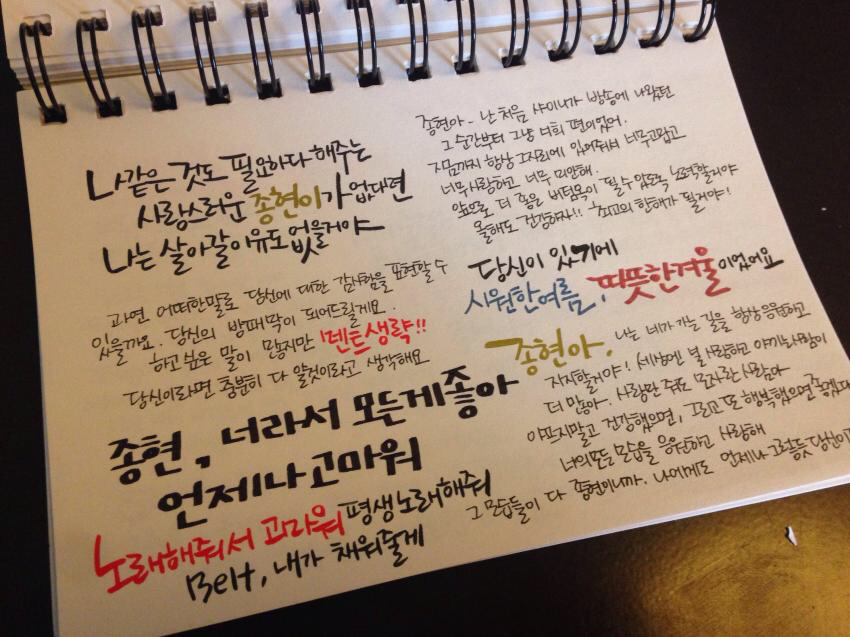 나같은 것도 필요하다 해주는
사랑스러운 종현이가 없다면
나는 살아갈 이유도 없을거야
과연 어떠한말로 당신에 대한 감사함을 표현할 수
있을까요. 당신의 방패막이 되어드릴게요.
하고싶은 말이 많지만 멘트생략!!
당신이라면 충분히 다 알것이라고 생각해요
종현, 너라서 모든게좋아
언제나고마워
노래해줘서 고마워 평생노래해줘
Belt, 내가 채워줄게
종현아- 난 처음 샤이니가 방송에 나왔던
그 순간부터 그냥 너희 편이었어.
지금까지 항상 그자리에 있어줘서 너무고맙고
너무사랑하고 너무 미안해.
앞으로 더 좋은 버팀목이 될 수 있도록 노력할거야
올해도 건강하자!! 최고의 한해가 될거야!
당신이 있기에
시원한여름, 따뜻한겨울이었어요
종현아. 나는 네가 가는 길을 항상 응원하고
지지할거야! 세상엔 널 사랑하고 아끼는사람이
더 많아. 사랑만 줘도 모자란 사람아
아프지말고 건강했으면, 그리고 또 행복했으면 좋겠다
너의모든 모습을 응원하고 사랑해
그 모습들이 다 종현이니까. 나에게도 언제나 그렇듯 당신이